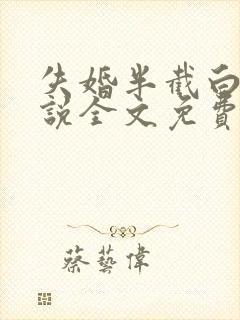 失婚半截白
說全文免費
蔡藝偉